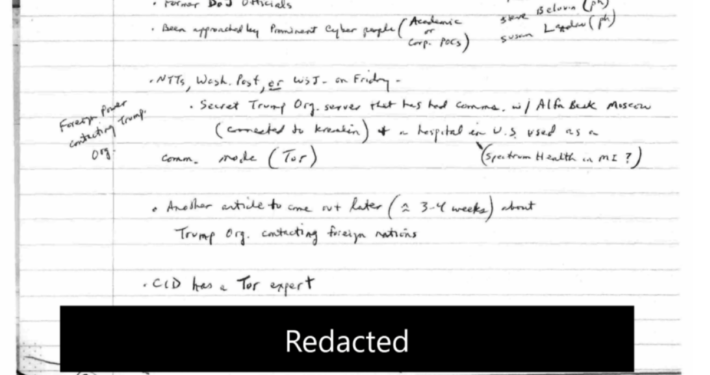 · Former DoJ Officials
· Been approached by Prominent Cyber people (Academic
or
Corp. POCs)
Steve Belovin (ph)
Susan Landau (ph)
· NYTs, Wash. Post, or WSJ - on Friday -
· Secret Trump Org. server that has had comms. w/ Alfa Bank Moscow
(connected to Kremlin) + a hospital in U.S. used as a
comm. node (Tor) (Spectrum Health in MI?)
Foreign Power
contacting Trump
Org.
· Another article to come out later (≈ 3-4 weeks) about
Trump Org. contacting foreign nations
· CID has a Tor expert
Redacted